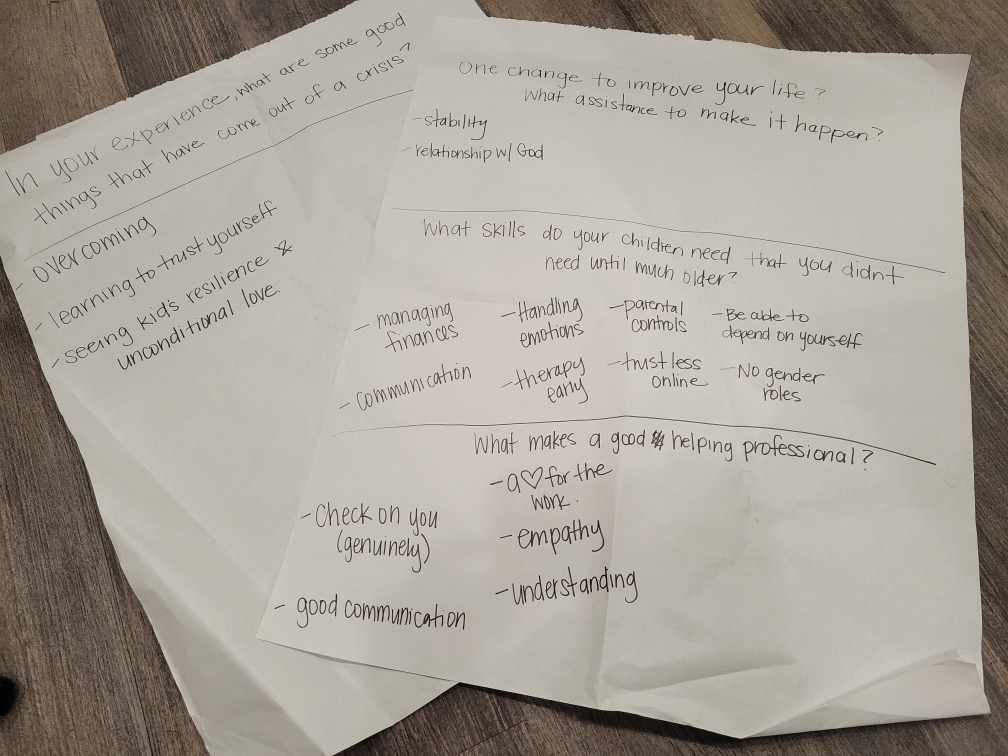 In your experience, what are some good
things that have come out of a crisis?
- overcoming
- learning to trust yourself
- seeing kid's resilience &
unconditional love.
One change to improve your life?
What assistance to make it happen?
- stability
- relationship w/ God
What skills do your children need that you didn't
need until much older?
- managing
finances
- communication
- Handling
emotions
- therapy
early
- parental
controls
- trust less
online
- Be able to
depend on yourself
- No gender
roles
What makes a good helping professional?
- Check on you
(genuinely)
- good communication
- a ♡ for the
work.
- empathy
- understanding